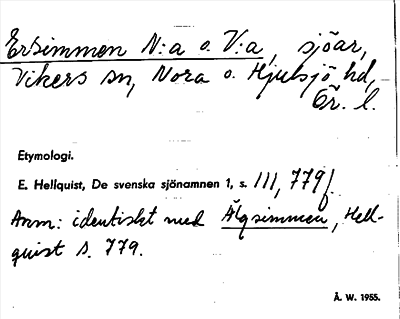 Ersimmen N:a o. V:a, sjöar,
Vikers sn, Nora o. Hjulsjö hd,
Ör. l.
Etymologi.
E. Hellquist, De svenska sjönamnen 1, s. 111, 779f.
Anm: identiskt med Älgsimmen, Hell-
quist s. 779.
Å. W. 1955.